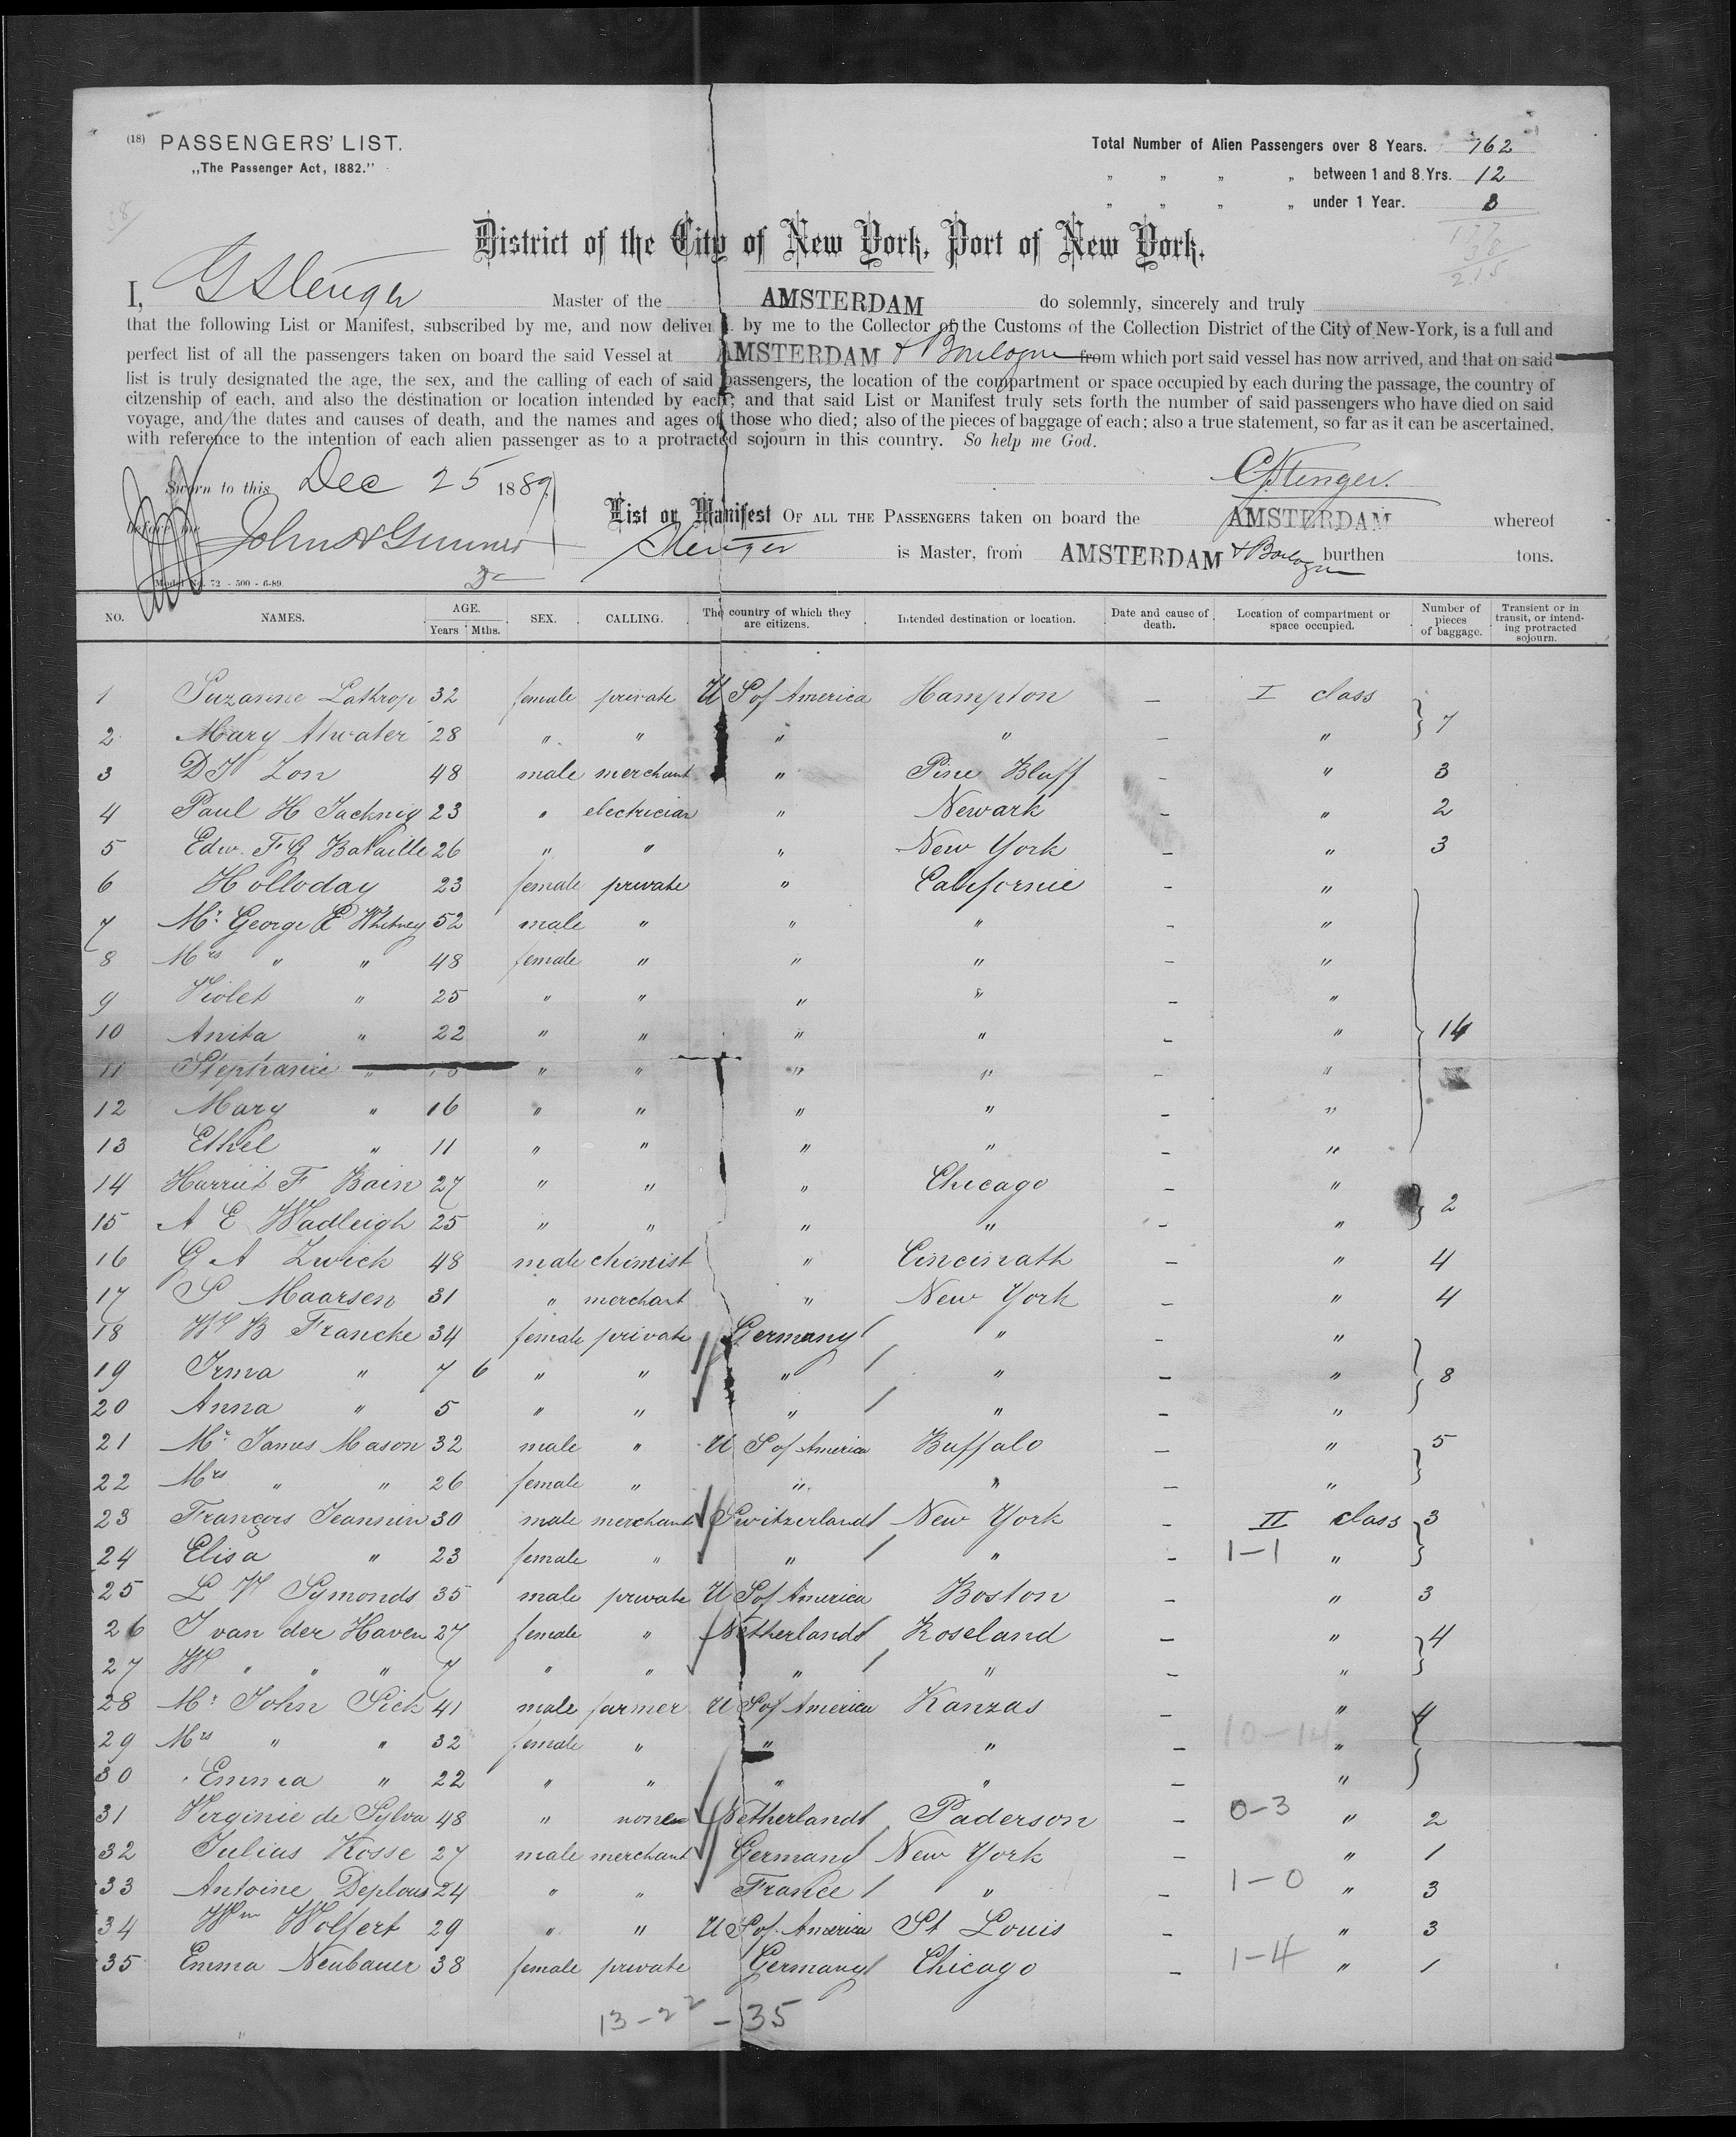 (18) PASSENGERS' LIST.
„The Passenger Act, 1882."
Total Number of Alien Passengers over 8 Years. 162
„ „ „ „ between 1 and 8 Yrs. 12
„ „ „ „ under 1 Year. 3
177
38
215
District of the City of New York, Port of New York.
I, G Stenger Master of the AMSTERDAM do solemnly, sincerely and truly
that the following List or Manifest, subscribed by me, and now deliver by me to the Collector of the Customs of the Collection District of the City of New-York, is a full and
perfect list of all the passengers taken on board the said Vessel at AMSTERDAM & Boulogne from which port said vessel has now arrived, and that on said
list is truly designated the age, the sex, and the calling of each of said passengers, the location of the compartment or space occupied by each during the passage, the country of
citzenship of each, and also the destination or location intended by each; and that said List or Manifest truly sets forth the number of said passengers who have died on said
voyage, and the dates and causes of death, and the names and ages of those who died; also of the pieces of baggage of each; also a true statement, so far as it can be ascertained,
with reference to the intention of each alien passenger as to a protracted sojourn in this country. So help me God.
Sworn to this Dec 25 1889
Stenger.
before me
List or Manifest OF ALL THE PASSENGERS taken on board the AMSTERDAM whereof
Stenger is Master, from AMSTERDAM & Boulogne burthen tons.
Model No. 72 - 500 - 6-89.
NO. NAMES. AGE. Years Mths. SEX. CALLING. The country of which they are citizens. Intended destination or location. Date and cause of death. Location of compartment or space occupied. Number of pieces of baggage. Transient or in transit, or intending protracted sojourn.
1 Suzanne Lathrop 32 female private U S of America Hampton — I class
2 Mary Atwater 28 " " " " — " 7
3 Lon 48 male merchant " Pine Bluff — " 3
4 Paul H 23 " electrician " Newark — " 2
5 Edw. F G Bataille 26 " " " New York — " 3
6 Holloday 23 female private " Californie — "
7 Mr George E Whitney 52 male " " " — "
8 Mrs " " 48 female " " " — "
9 Violet " 25 " " " " — "
10 Anita " 22 " " " " — " 14
11 Stephanie " " " " " — "
12 Mary " 16 " " " " — "
13 Ethel " 11 " " " " — "
14 Harriet F Bain 27 " " " Chicago — "
15 A E Wadleigh 25 " " " " — " 2
16 G A Zwick 48 male chimist " Cincinath — " 4
17 S Maarsen 31 " merchant " New York — " 4
18 B Francke 34 female private Germany " — "
19 Irma " 7 6 " " " " — " 8
20 Anna " 5 " " " " — "
21 Mr James Mason 32 male " U S of America Buffalo — " 5
22 Mrs " " 26 female " " " — "
23 François Jeannin 30 male merchant Switzerland New York — II class 3
24 Elisa " 23 female " " " — 1-1 "
25 L W Symonds 35 male private U S of America Boston — " 3
26 J van der Haven 27 female " Netherlands Roseland — " 4
27 W " " " 7 " " " " — "
28 Mr John Sick 41 male farmer U S of America Kanzas — " 4
29 Mrs " " 32 female " " " — 10-14 "
30 Emma " 22 " " " " — "
31 Verginie de Sylva 48 " none Netherlands Paderson — 0-3 " 2
32 Julius Kosse 27 male merchant Germany New York — " 1
33 Antoine 24 " " France " — 1-0 " 3
34 Wm Wolfert 29 " " U S of America St Louis — " 3
35 Emma Neubauer 38 female private Germany Chicago — 1-4 " 1
13-22 - 35